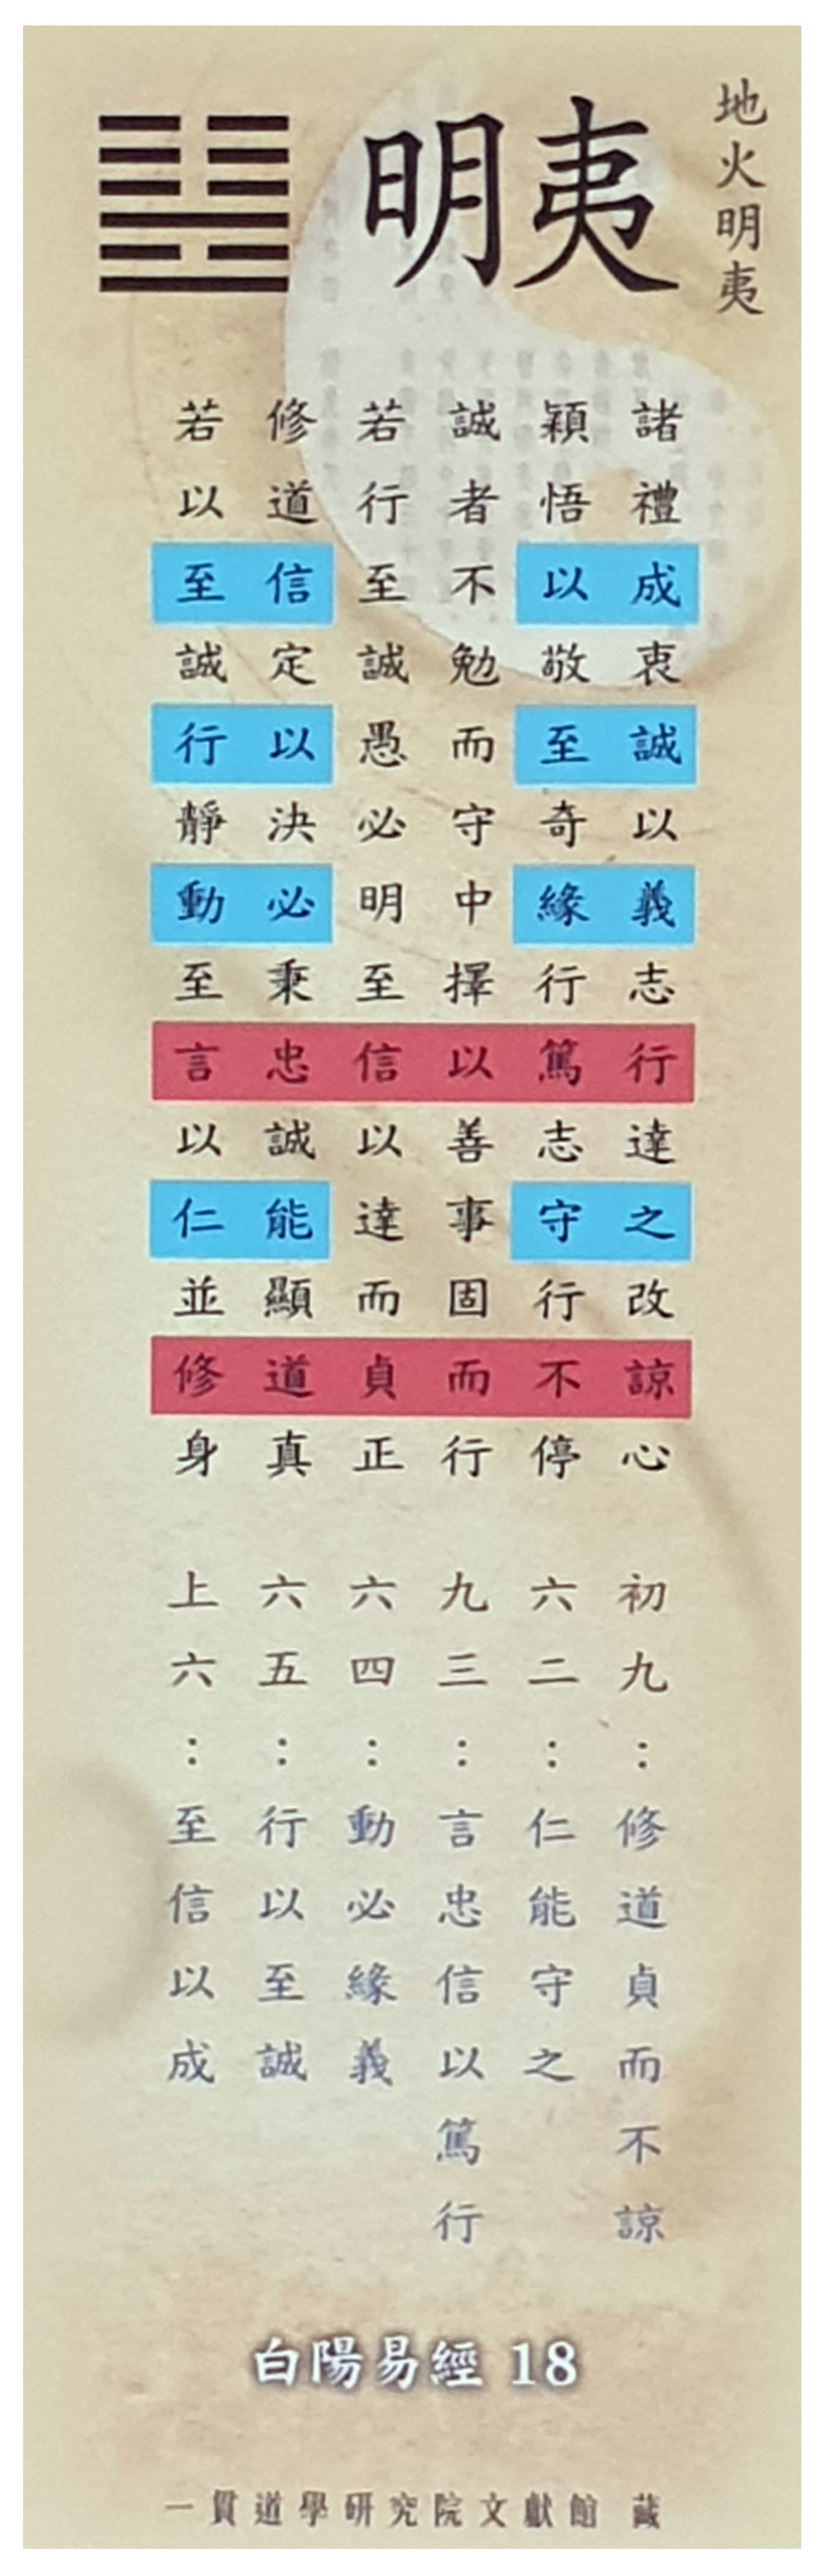 地火明夷
明夷
諸禮成衷誠以義志行達之改諒心
穎悟以敬至奇緣行篤志守行不停
誠者不勉而守中擇以善事固而行
若行至誠愚必明至信以達而貞正
修道信定以決必秉忠誠能顯道真
若以至誠行靜動至言以仁並修身
初九：修道貞而不諒
六二：仁能守之
九三：言忠信以篤行
六四：動必緣義
六五：行以至誠
上六：至信以成
白陽易經 18
一貫道學研究院文獻館 藏